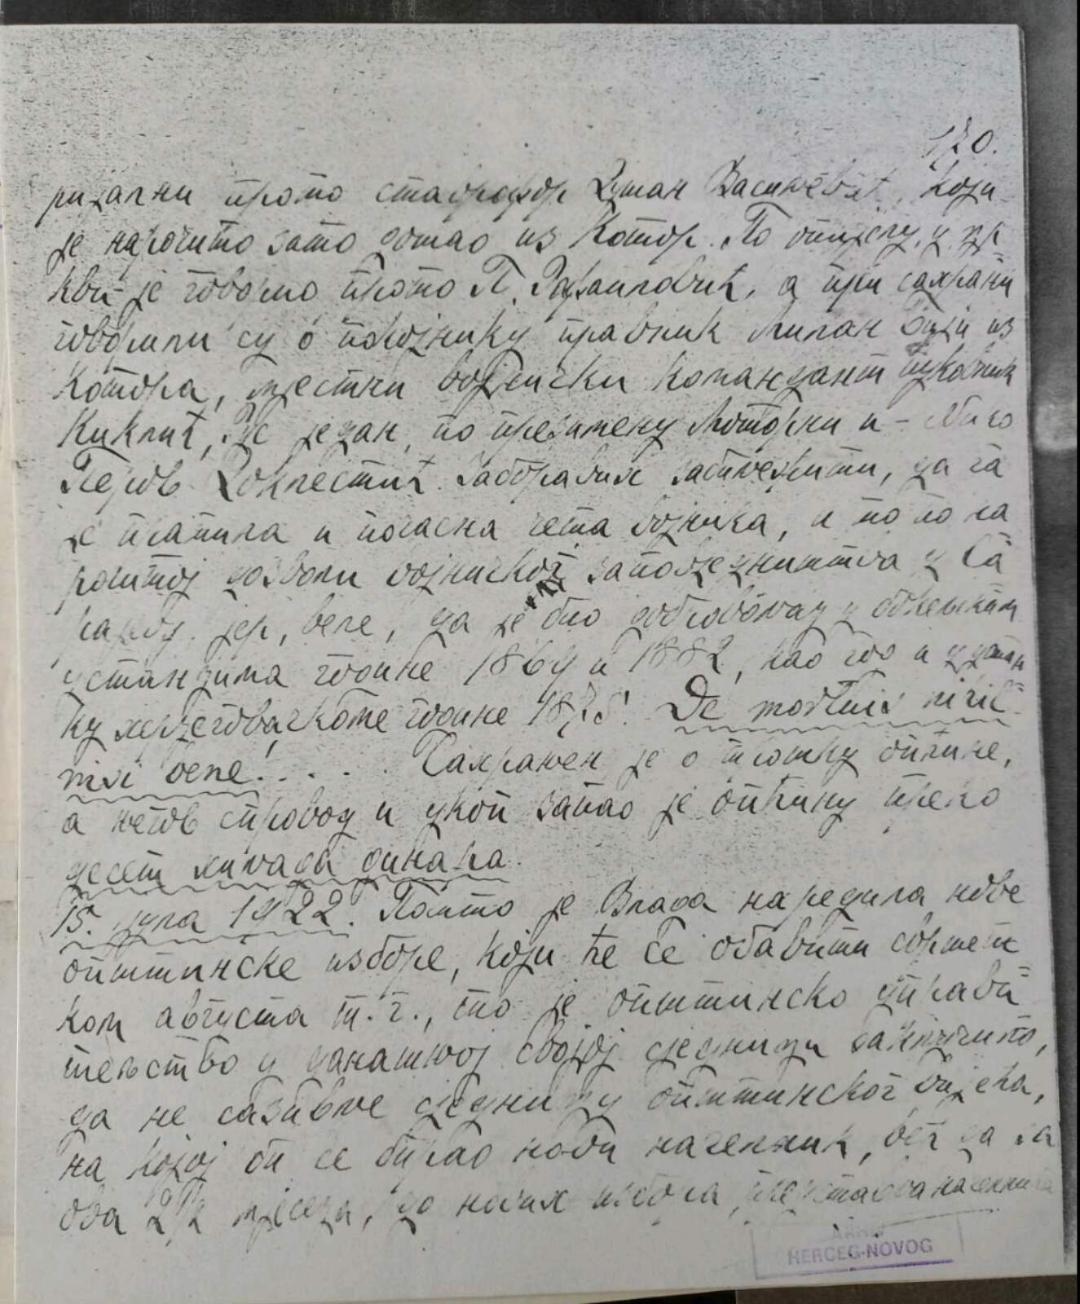 170.
протo ставрофор Душан Васиљевић, који
је нарочито зато дошао из Котор. По опијелу у цр
кви је говорио прото П. а при сахрани
говорили су о покојнику правник Милан из
Котора, мјестни војнички командант пуковник
Киклић, је један, по презимену и
Перов Заборавих забиљежити, да га
је пратила и почасна чета војника, и то по
дозволи војничког заповједништва у Са
рајеву. јер, веле, да је био у
устанцима године 1869 и 1882, као год и у устан
ку херцеговачкоме године 1875! De mortuis nihil
nisi bene! . . . . Сахрањен је о трошку општине,
а његов спровод и укоп запао је општину преко
десет хиљада динара.
15. јула 1922. Пошто је Влада наредила нове
општинске изборе, који ће се обавити свршет
ком августа т. г., то је општинско управи
тељство у данашњој својој сједници закључило,
да не сазивље сједницу општинског вијећа,
на којој би се бирао нови начелник, већ да за
ова 2½ мјесеца, до нових избора, начелника
HERCEG-NOVOG